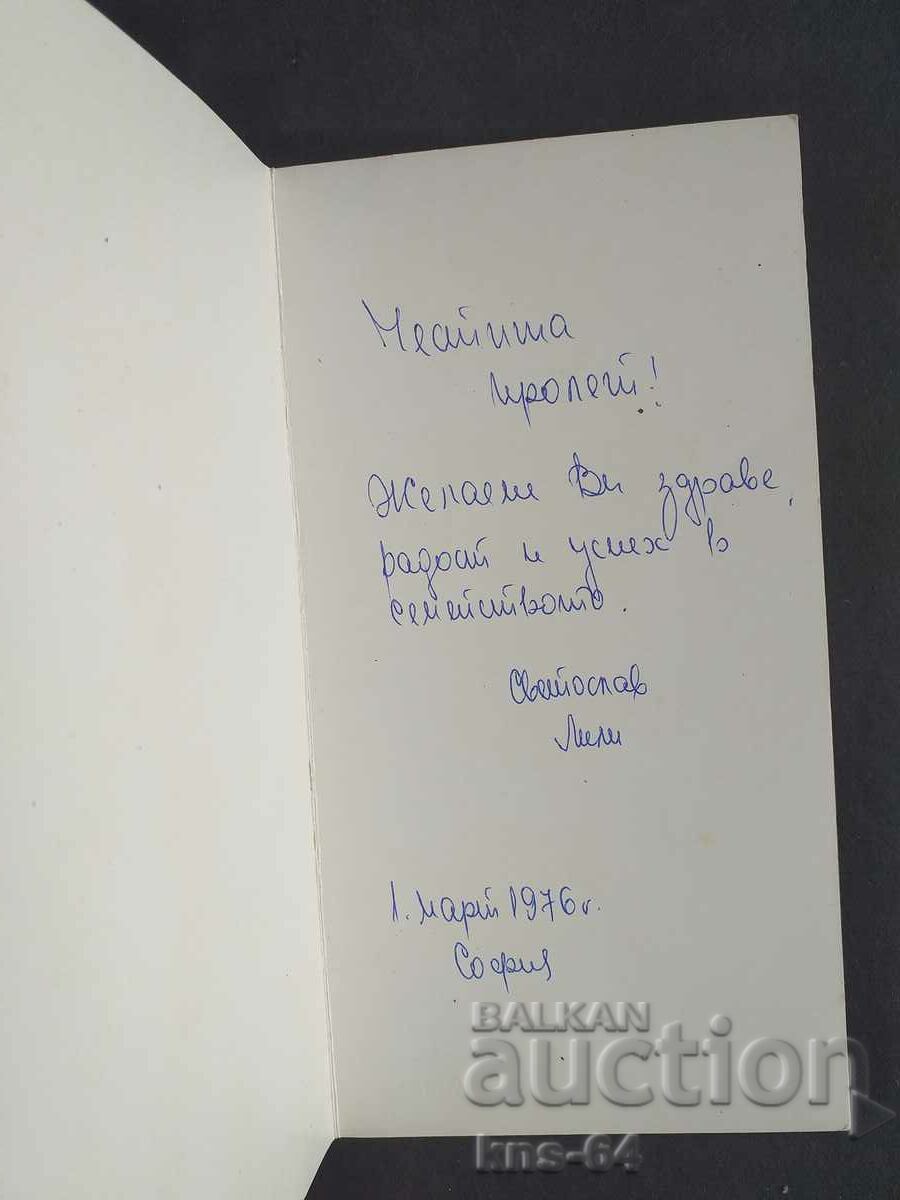 Честита
пролет!
Желаем Ви здраве,
радост и успех в
семейството.
Светослав
Лили
1. март 1976 г.
София
BALKAN
auction
kns-64